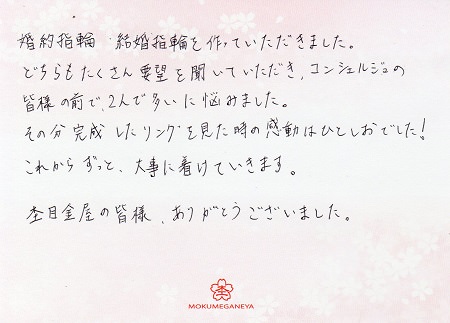 婚約指輪 結婚指輪を作っていただきました。
どちらもたくさん要望を聞いていただき、コンシェルジュの
皆様の前で、2人で多いに悩みました。
その分完成したリングを見た時の感動はひとしおでした!
これからずっと、大事に着けていきます。
杢目金屋の皆様、ありがとうございました。
杢
MOKUMEGANEYA